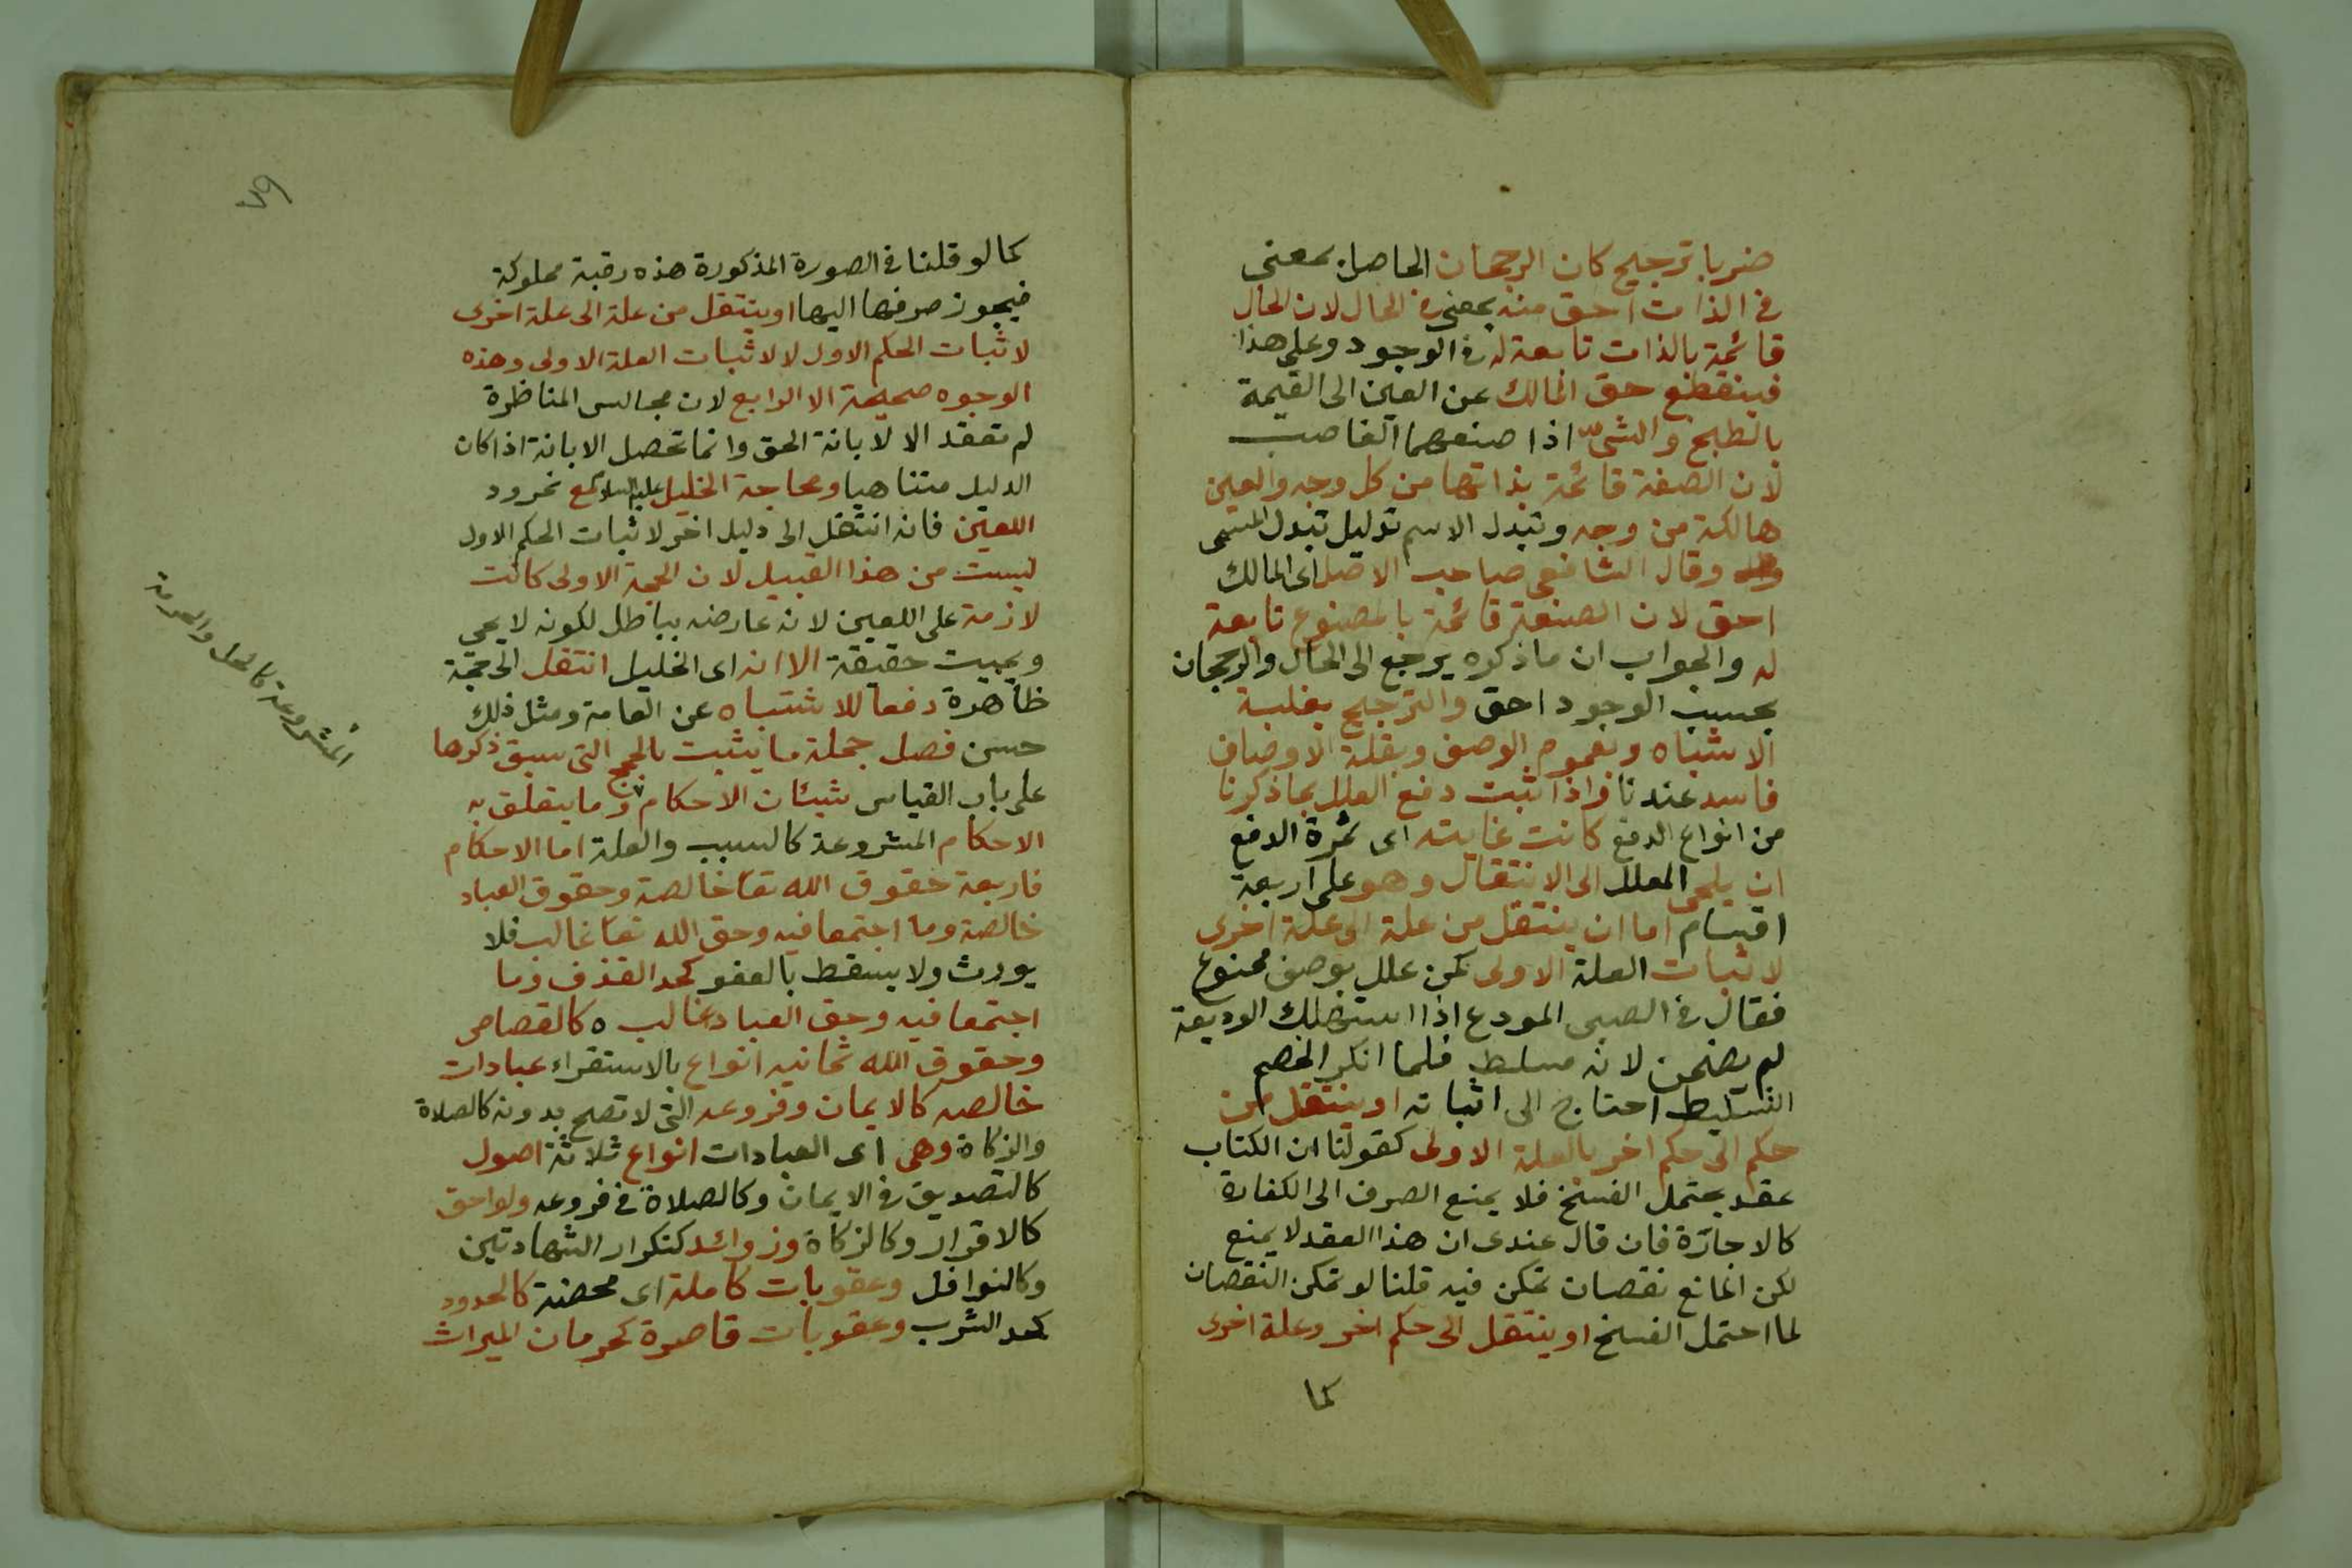 ضربا ترجيح كان الرجحان الحاصل بمعنى
فى الذات احق منه بمعنى فى الحال لان الحال
قائمة بالذات تابعة له فى الوجود وعلى هذا
فينقطع حق المالك عن العين الى القيمة
بالطبخ والشى اذا صنعهما الغاصب
لان الصفة قائمة بذاتها من كل وجه والعين
هالكة من وجه وتبدل الاسم دليل تبدل المسمى
وقال الشافعى صاحب الاصل اى المالك
احق لان الصنعة قائمة بالمصنوع تابعة
له والجواب ان ما ذكره يرجع الى الحال والرجحان
بحسب الوجود احق والترجيح بغلبة
الاشباه وبعموم الوصف وبقلة الاوصاف
فاسد عندنا واذا ثبت دفع العلل بما ذكرنا
من انواع الدفع كانت غايته اى ثمرة الدفع
ان يلجى المعلل الى الانتقال وهو على اربعة
اقسام اما ان ينتقل من علة الى علة اخرى
لاثبات العلة الاولى كمن علل بوصف ممنوع
فقال فى الصبى المودع اذا استهلك الوديعة
لم يضمن لانه مسلط فلما انكر الخصم
التسليط احتاج الى اثباته او ينتقل من
حكم الى حكم اخر بالعلة الاولى كقولنا ان الكتاب
عقد يحتمل الفسخ فلا يمنع الصرف الى الكفارة
كالاجارة فان قال عندى ان هذا العقد لا يمنع
لكن المانع نقصان تمكن فيه قلنا لو تمكن النقصان
لما احتمل الفسخ او ينتقل الى حكم اخر وعلة اخرى
كما
كما لو قلنا فى الصورة المذكورة هذه رقبة مملوكة
فيجوز صرفها اليها او ينتقل من علة الى علة اخرى
لاثبات الحكم الاول لا لاثبات العلة الاولى وهذه
الوجوه صحيحة الا الرابع لان مجالس المناظرة
لم تعقد الا لابانة الحق وانما تحصل الابانة اذا كان
الدليل متناهيا ومحاجة الخليل عليه السلام مع نمرود
اللعين فانه انتقل الى دليل اخر لاثبات الحكم الاول
ليست من هذا القبيل لان الحجة الاولى كانت
لازمة على اللعين لانه عارضه بباطل لكونه لا يحيى
ويميت حقيقة الا انه اى الخليل انتقل الى حجة
ظاهرة دفعا للاشتباه عن العامة ومثل ذلك
حسن فصل جملة ما يثبت بالحجج التى سبق ذكرها
على باب القياس شيئان الاحكام وما يتعلق به
الاحكام المشروعة كالسبب والعلة اما الاحكام
فاربعة حقوق الله تعا خالصة وحقوق العباد
خالصة وما اجتمعا فيه وحق الله تعا غالب فلا
يورث ولا يسقط بالعفو كحد القذف وما
اجتمعا فيه وحق العباد غالب ه كالقصاص
وحقوق الله ثمانية انواع بالاستقراء عبادات
خالصه كالايمان وفروعه التى لا تصح بدونه كالصلاة
والزكاة وهى اى العبادات انواع ثلاثة اصول
كالتصديق فى الايمان وكالصلاة فى فروعه ولواحق
كالاقرار وكالزكاة وزوائد كتكرار الشهادتين
وكالنوافل وعقوبات كاملة اى محضة كالحدود
كحد الشرب وعقوبات قاصرة كحرمان الميراث
المشروعة كالحل والحرمة